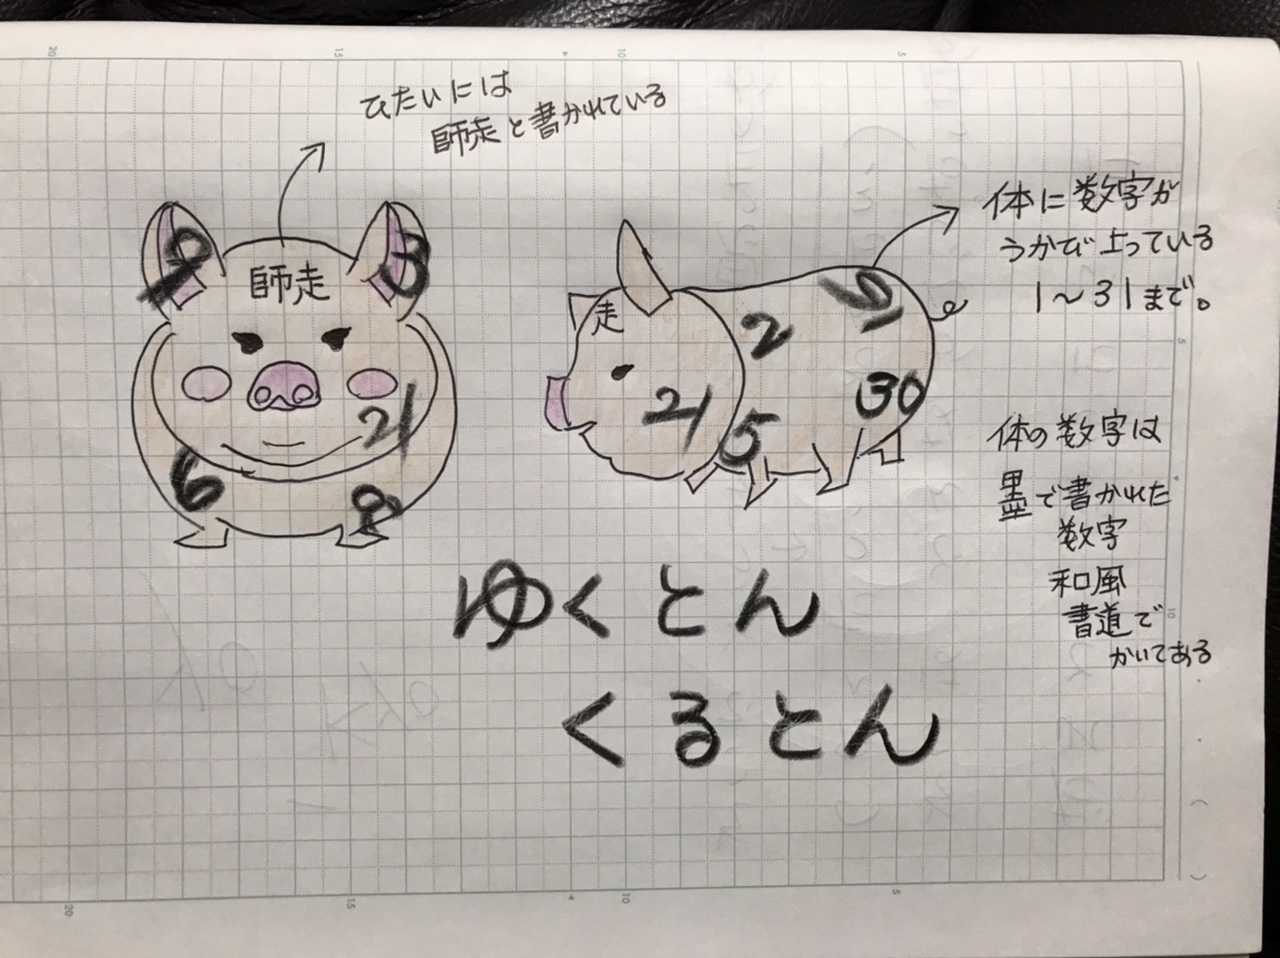 ひたいには
師走と書かれている
師走
9
3
21
6
8
走
2
21
5
30
体に数字が
うかび上っている
1〜31まで。
体の数字は
墨で書かれた
数字
和風
書道で
かいてある
ゆくとん
くるとん
20
15
10
5
5
10
20
15
10
5